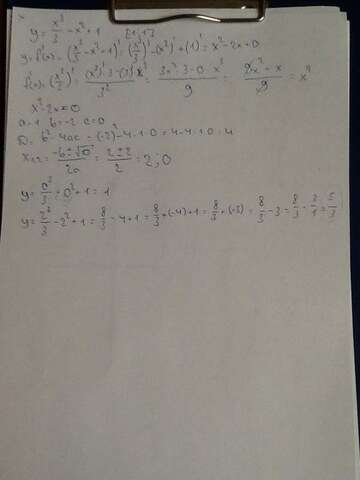 y = x³/3 - x² + 1 [-1;1]
y' = f'(x) = (x³/3 - x² + 1)' = (x³/3)' - (x²)' + (1)' = x² - 2x + 0
f'(x) = (x³/3)' = ((x³)'·3 - (3)'·x³)/3² = (3x²·3 - 0·x³)/9 = = x²
x² - 2x = 0
a = 1 b = -2 c = 0
D = b² - 4ac = (-2)² - 4·1·0 = 4 - 4·1·0 = 4
x₁,₂ = (-b ± √D)/2a = (2 ± 2)/2 = 2; 0
y = 0³/3 - 0² + 1 = 1
y = 2³/3 - 2² + 1 = 8/3 - 4 + 1 = 8/3 + (-4) + 1 = 8/3 + (-3) = 8/3 - 3 = 8/3 - 3/1 = 5/3